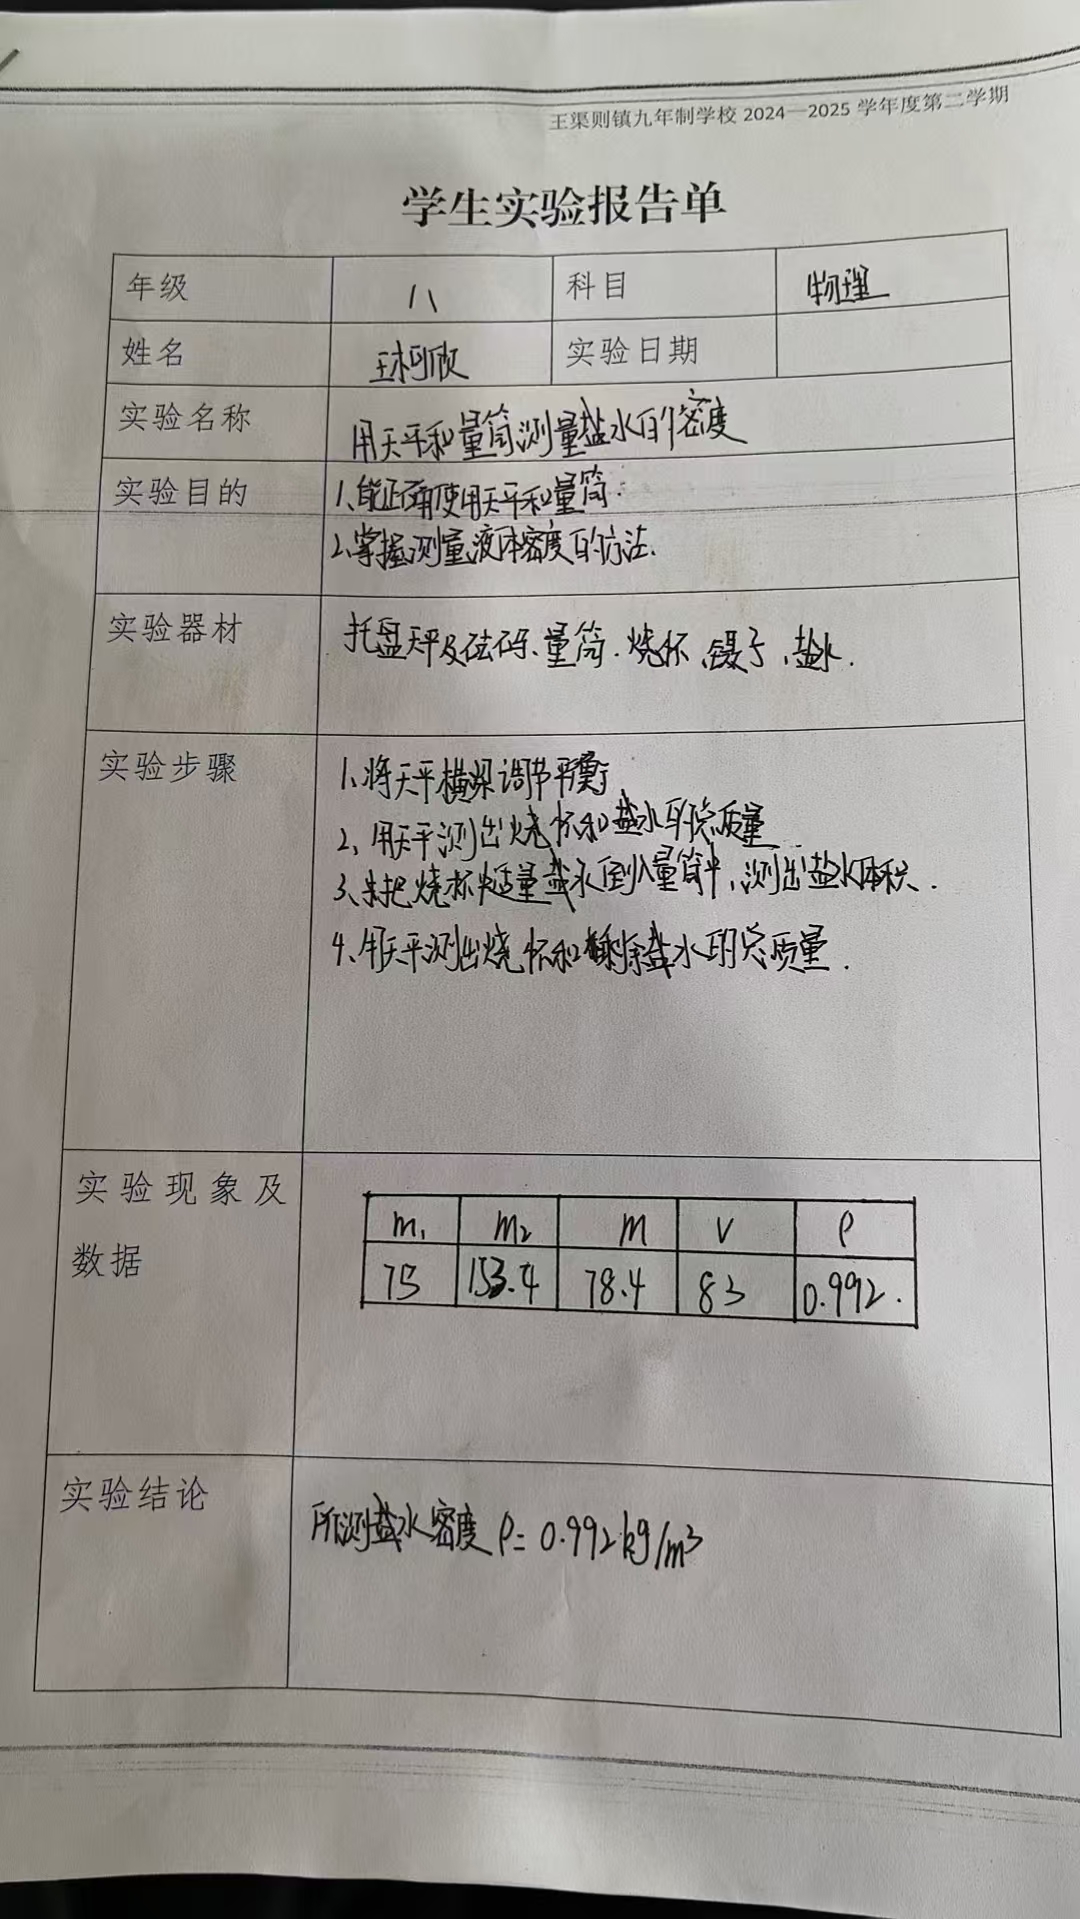 王渠则镇九年制学校 2024—2025 学年度第二学期
学生实验报告单
年级 八 科目 物理
姓名 王柯欣 实验日期
实验名称 用天平和量筒测量盐水的密度
实验目的 1、能正确使用天平和量筒.
2、掌握测量液体密度的方法.
实验器材 托盘天平及砝码、量筒、烧杯、镊子、盐水.
实验步骤 1、将天平横梁调节平衡
2、用天平测出烧怀和盐水的总质量
3、把烧杯中适量盐水倒入量筒中,测出盐水体积.
4、用天平测出烧怀和剩余盐水的总质量.
实验现象及
数据
m₁ m₂ m V ρ
75 153.4 78.4 83 0.992.
实验结论 所测盐水密度 ρ= 0.992kg/m³